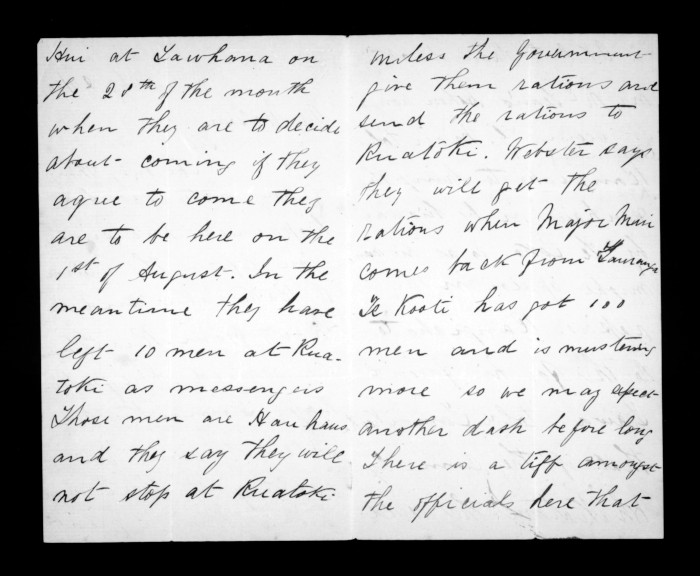 Hui at Tawhana on
the 28th of the month
when they are to decide
about coming if they
agree to come they
are to be here on the
1st of August. In the
meantime they have
left 10 men at Rua-
toki as messengers
Those men are Hau haus
and they say they will
not stop at Ruatoki
unless the Government
give them rations and
send the rations to
Ruatoki. Webster says
they will get the
rations when Major Mair
comes back from Tauranga
Te Kooti has got 100
men and is mustering
more so we may expect
another dash before long
There is a tiff amongst
the officials here that